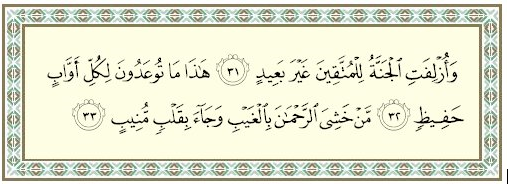 وَأُزْلِفَتِ الْجَنَّةُ لِلْمُتَّقِينَ غَيْرَ بَعِيدٍ ٣١ هَٰذَا مَا تُوعَدُونَ لِكُلِّ أَوَّابٍ
حَفِيظٍ ٣٢ مَّنْ خَشِىَ الرَّحْمَٰنَ بِالْغَيْبِ وَجَآءَ بِقَلْبٍ مُّنِيبٍ ٣٣